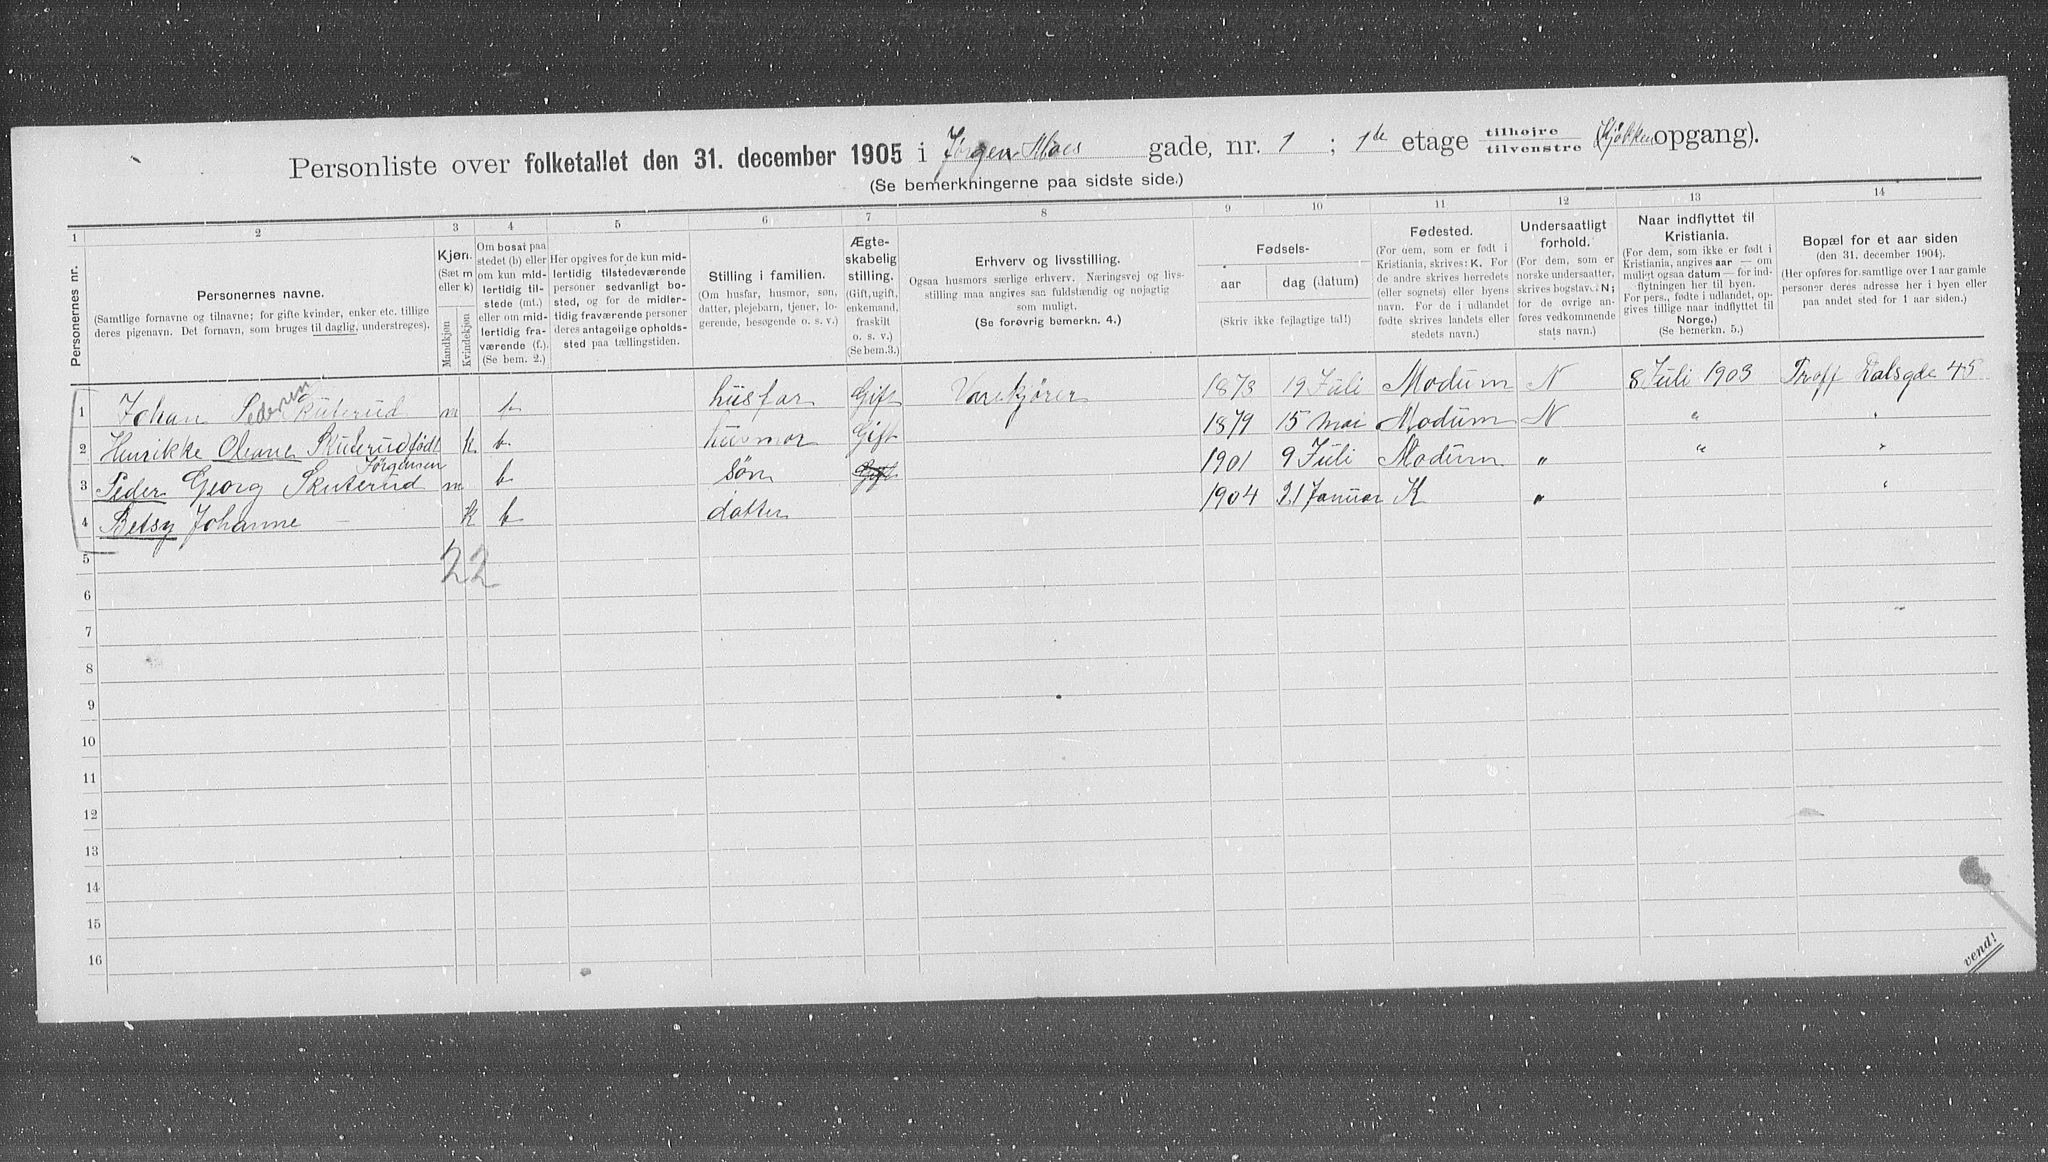 Personliste over folketallet den 31. december 1905 i Jørgen Moes gade, nr. 1 ; 1ste etage tilhøjre tilvenstre (Kjøkken opgang).
(Se bemerkningerne paa sidste side.)
1 2 3 4 5 6 7 8 9 10 11 12 13 14
Personernes nr.
Personernes navne.
(Samtlige fornavne og tilnavne; for gifte kvinder, enker etc. tillige
deres pigenavn. Det fornavn, som bruges til daglig, understreges).
Kjøn.
(Sæt m
eller k)
Mandkjøn
Kvindekjøn
Om bosat paa
stedet (b) eller
om kun mid-
lertidig til-
stede (mt.)
eller om mid-
lertidig fra-
værende (f.).
(Se bem. 2.)
Her opgives for de kun mid-
lertidig tilstedeværende
personer sedvanligt bo-
sted, og for de midler-
tidig fraværende personer
deres antagelige opholds-
sted paa tællingstiden.
Stilling i familien.
(Om husfar, husmor, søn,
datter, plejebarn, tjener, lo-
gerende, besøgende o. s. v.)
Ægte-
skabelig
stilling.
(Gift, ugift,
enkemand,
fraskilt
o. s. v.)
(Se bem.3.)
Erhverv og livsstilling.
Ogsaa husmors særlige erhverv. Næringsvej og livs-
stilling maa angives saa fuldstændig og nøjagtig
som muligt.
(Se forøvrig bemerkn. 4.)
Fødsels-
aar dag (datum)
(Skriv ikke fejlagtige tal!)
Fødested.
(For dem, som er født i
Kristiania, skrives: K. For
de andre skrives herredets
(eller sognets) eller byens
navn. For de i udlandet
fødte skrives landets eller
stedets navn.)
Undersaatligt
forhold.
(For dem, som er
norske undersaatter,
skrives bogstav: N;
for de øvrige an-
føres vedkommende
stats navn.)
Naar indflyttet til
Kristiania.
(For dem, som ikke er født i
Kristiania, angives aar — om
muligt ogsaa datum — for ind-
flytningen her til byen.
For pers., fødte i udlandet, op-
gives tillige naar indflyttet til
Norge.)
(Se bemerkn. 5.)
Bopæl for et aar siden
(den 31. december 1904).
(Her opføres for samtlige over 1 aar gamle
personer deres adresse her i byen eller
paa andet sted for 1 aar siden.)
1 Johan Pedersen Skuterud m b husfar Gift Varekjører 1873 19 Juli Modum N 8 Juli 1903 Proff Dalsgde 45
2 Henrikke Oleane Skuterud født Jørgensen k b husmor Gift 1879 15 Mai Modum N " "
3 Peder Georg Skuterud m b søn Gift 1901 9 Juli Modum " " "
4 Betsy Johanne — k b datter 1904 21 Januar K " "
22
5
6
7
8
9
10
11
12
13
14
15
16
vend!